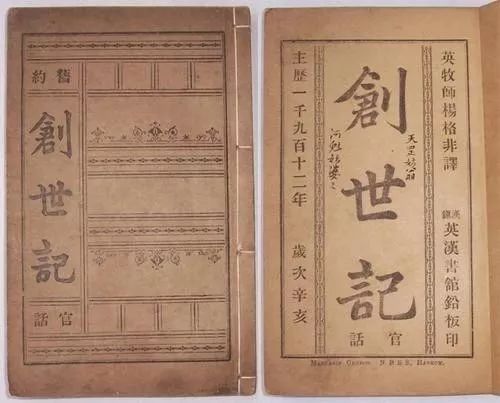 舊約
創世記
官話
英牧師楊格非譯
漢鎮英漢書館鉛板印
創世記
官話
主歷一千九百十二年 歲次辛亥
MANDARIN GENESIS. N. B. S. S., HANKOW.